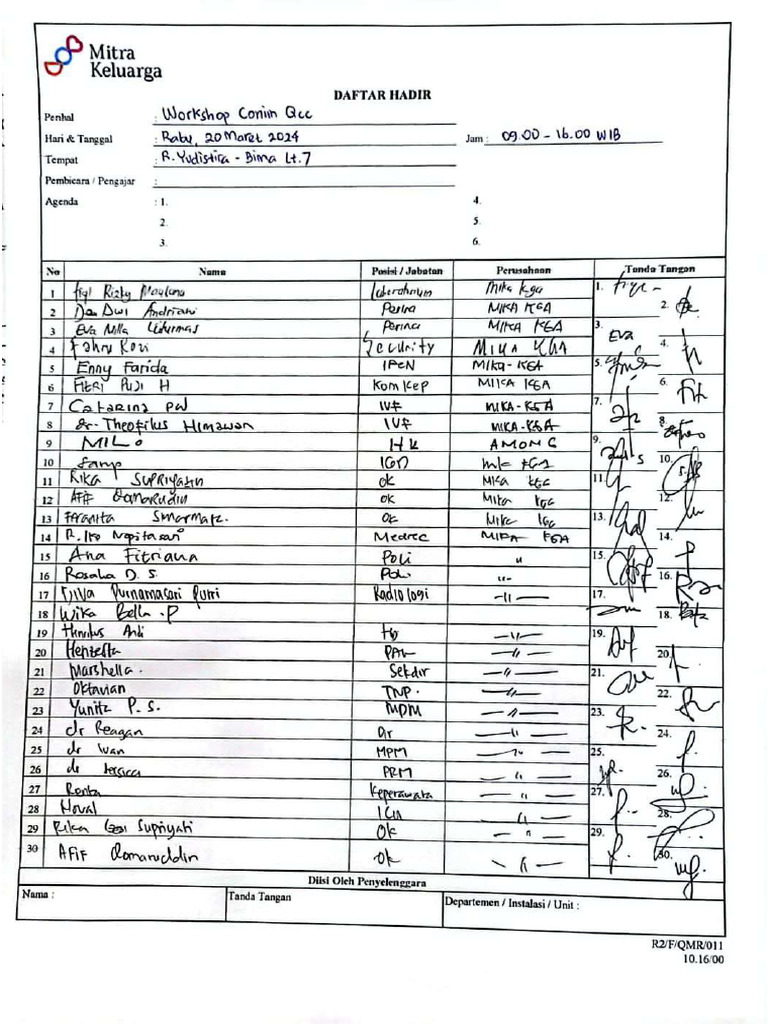 Mitra
Keluarga
DAFTAR HADIR
Perihal : Workshop Coniin Qcc
Hari & Tanggal : Rabu, 20 Maret 2024 Jam : 09.00 - 16.00 WIB
Tempat : R. Yudistira - Bima Lt.7
Pembicara / Pengajar :
Agenda : 1. 4.
2. 5.
3. 6.
No Nama Posisi / Jabatan Perusahaan Tanda Tangan
1 Rizky Maulana Laboratorium Mika Kga 1.
2 Dwi Andriani Perina MIKA KGA 2.
3 Eva Milla Perina MIKA KGA 3. Eva
4 Fahru Rozi Security MIKA KGA 4.
5 Enny Farida IPCN MIKA-KGA 5.
6 FITRI PUJI H Komkep MIKA KGA 6. Fit
7 Catarina PW IVF MIKA-KGA 7.
8 dr. Theofilus Himawan IVF MIKA-KGA 8.
9 MILO HK AMONG 9.
10 IGD KGA 10.
11 RIKA SUPRIYATIN OK Mika KGA 11.
12 AFIF Qomarudin OK Mika KGA 12.
13 OK Mika KGA 13.
14 R. Iko Napitasari Medrec MIKA KGA 14.
15 Ana Fitriana Poli " 15.
16 Rosalia D. S. Poli -"- 16.
17 Purnamasari Putri Radiologi -"- 17.
18 Wika Bella .P 18.
19 -"- 19.
20 -"- 20.
21 Marshella. Sekdir -"- 21.
22 Oktavian TNP. -"- 22.
23 Yunita P. S. MPM -"- 23.
24 dr Reagan Dir -"- 24.
25 dr Iwan MPM -"- 25.
26 dr Jessica PRM -"- 26.
27 Renta Keperawata -"- 27.
28 Noval -"- 28.
29 Rika Supriyati OK -"- 29.
30 AFIF Qomaruddin OK -"- 30.
Diisi Oleh Penyelenggara
Nama : Tanda Tangan Departemen / Instalasi / Unit :
R2/F/QMR/011
10.16/00